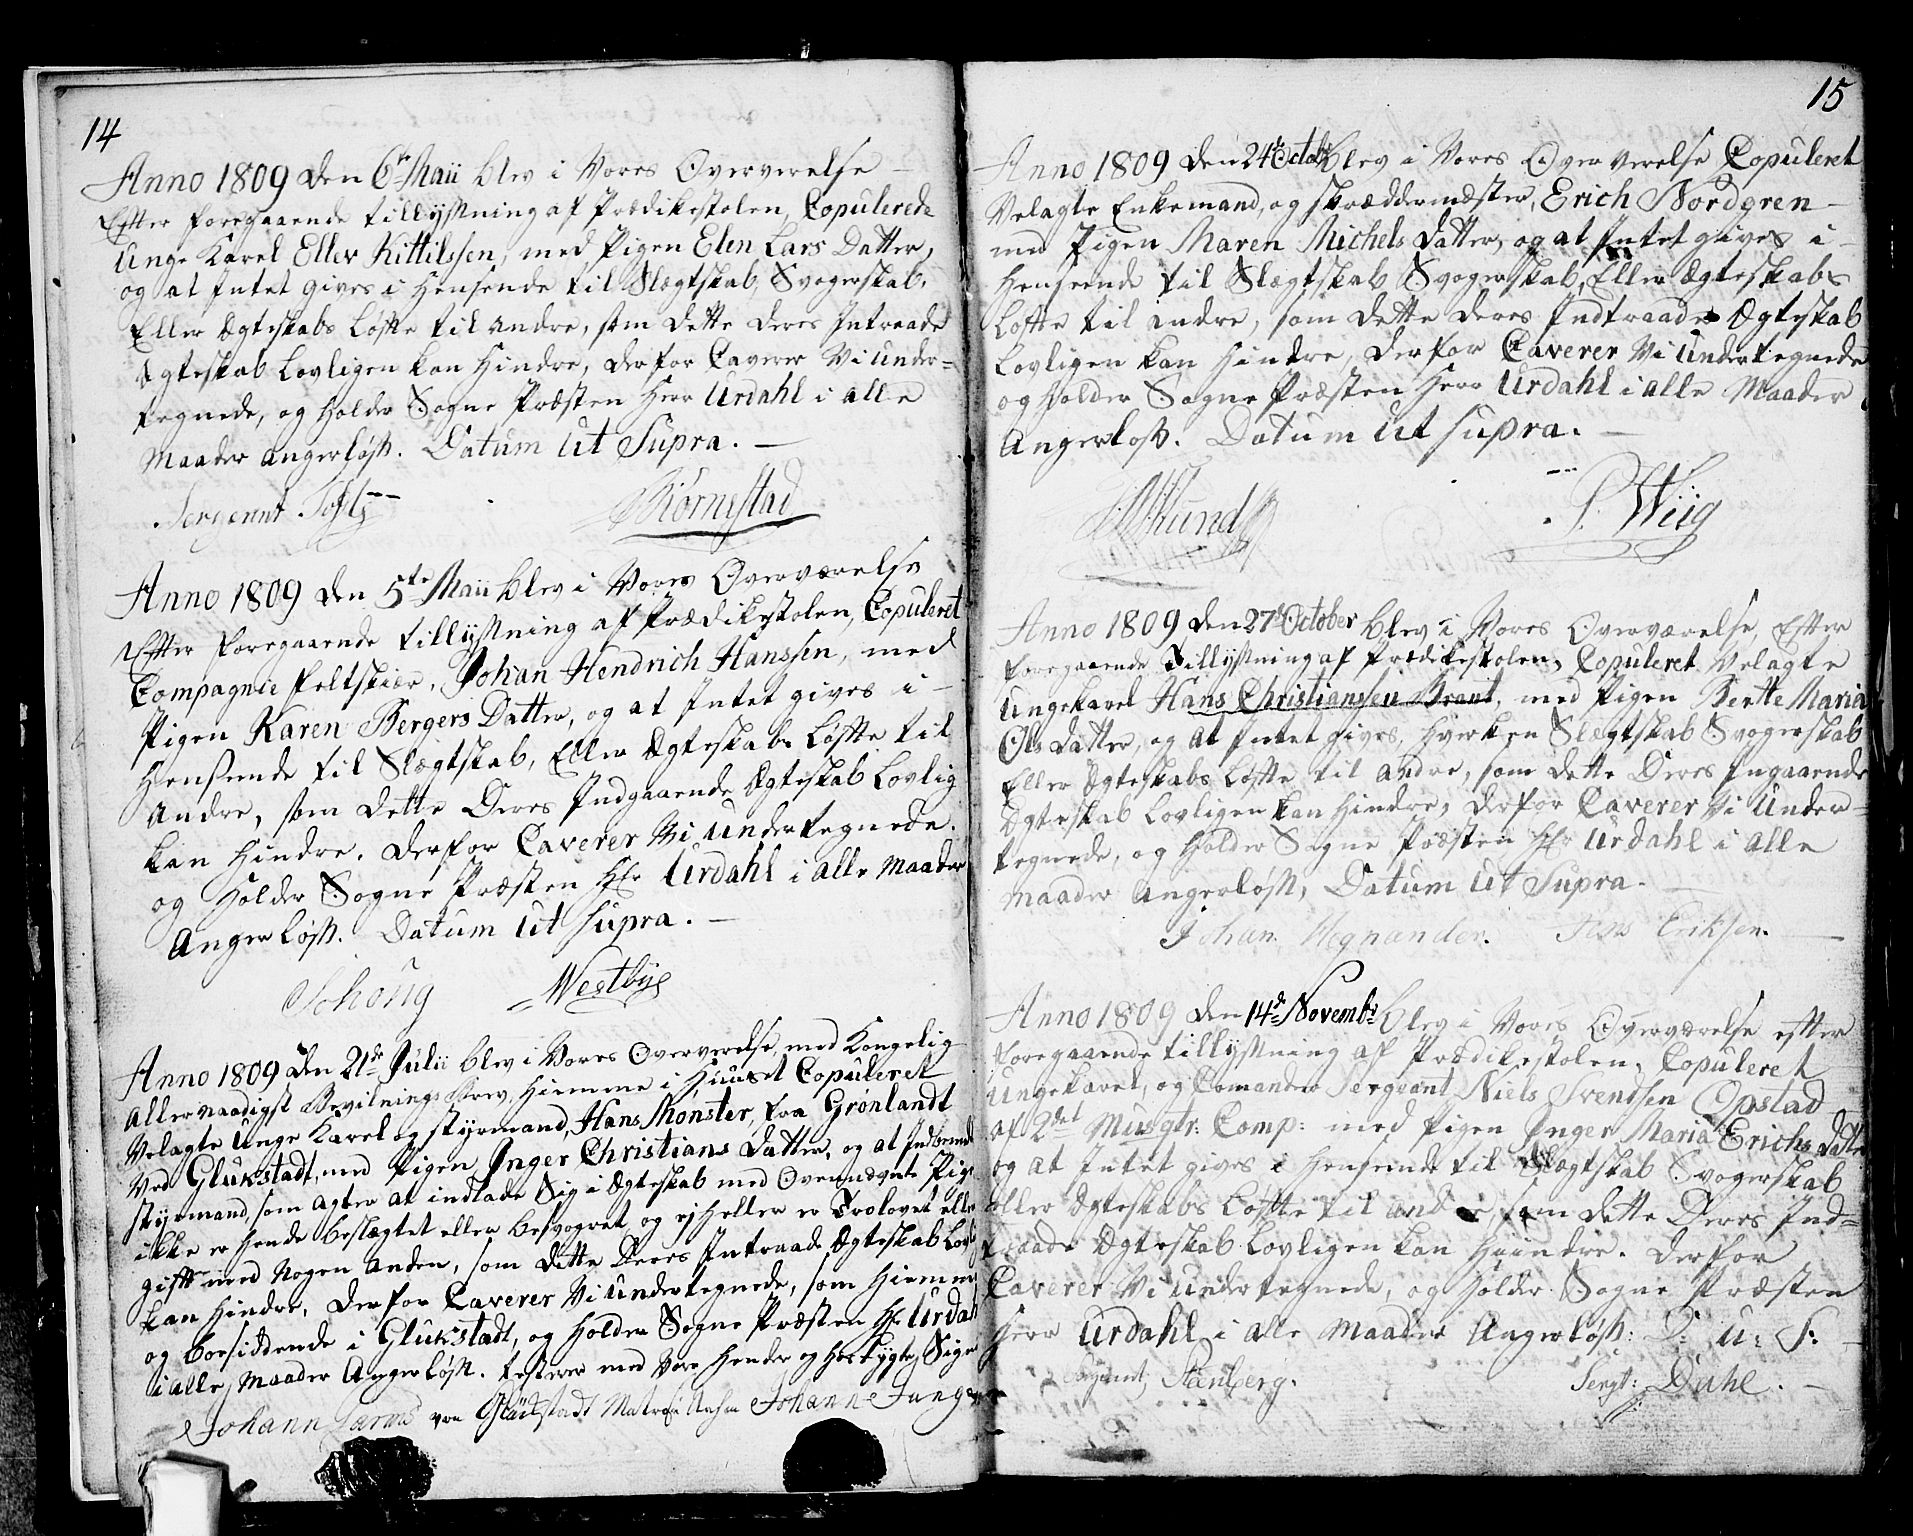 14
Anno 1809 den 6te Maii blev i Vores Oververelse
Efter foregaaende tillysning af Prædikestolen, Copulerede
Unge Karel Ellev Kittilssen, med Pigen Elen Lars Datter,
og at Intet gives i Hensende til Slægtskab, Svogerskab,
Eller Ægteskabs Løfte til andre, som dette deres Intraade
Ægteskab Lovligen kan Hindre, derfor Caverer Vi under-
tegnede, og holder Sogne Præsten Herr Urdahl i alle
Maader angerløs. Datum ut Supra.
Sergeant Biörnstad
Anno 1809 den 5te Maii blev i Vores Overværelse
Efter foregaaende tillysning af Prædikestolen, Copuleret
Compagnie feltskiær, Johan Hendrich Hanssen, med
Pigen Karen Bergers Datter, og at Intet gives i
Hensende til Slægtskab, Eller Ægteskabs Løfte til
Andre, som dette Deres Indgaaende Ægteskab Lovlig
kan Hindre. derfor Caverer Vi undertegnede.
og Holder Sogne Præsten Hr Urdahl i alle Maader
Angerløs. Datum ut supra.
Schoug Westbye
Anno 1809 den 21de Julii blev i Vores Oververelse, med Kongelig
Allernaadigst Bevilnings Brev, Hiemme i Huuset Copuleret
Velagte Unge Karel og styrmand, Hans Mønster, fra Grønlandt
Ved Glukstadt, med Pigen Inger Christians Datter, og at Indbemte
Styrmand, som agter at indlade Sig i Ægteskab med Ovennægnte Pige
ikke er Hende beslægtet eller besvogret, og ej heller er Trolovet eller
gift med Nogen anden, som dette Deres Intraade Ægteskab Lovlig
kan Hindre, derfor Caverer Vi Undertegnede, som Hiemme
og boesiddende i Glukstadt, og Holder Sogne Præsten Hr Urdahl
i alle Maader Angerløs. testerer med Vore Hender og hostrygte Signe
Johann Harms von Glückstadt Johann Junge
15
Anno 1809 den 24de Octobr blev i Vores Oververelse Copuleret
Velagte Enkemand, og skræddermæster, Erich Nordgren
med Pigen Maren Michels Datter, og at Intet gives i
Henseende til Slægtskab Svogerskab, Eller Ægteskabs
Løfte til andre, som dette deres Indtraade Ægteskab
Lovligen kan Hindre, derfor Caverer Vi Undertegnede
og holder Sogne Præsten Herr Urdahl i alle Maader
Angerløs. Datum ut supra.
P. Wiig
Anno 1809 den 27de October blev i Vores Overværelse, Efter
foregaaende Tillysning af Prædikestolen, Copuleret Velagte
Ungekarel Hans Christianssen Brant, med Pigen Berthe Maria
Ols Datter, og at Intet gives, hverken Slægtskab Svogerskab
Eller Ægteskabs Løfte til andre, som dette Deres Ingaaende
Ægteskab Lovligen kan Hindre, derfor Caverer Vi Under-
tegnede, og holder Sogne Præsten Hr Urdahl i alle
Maader Angerløs, Datum ut Supra.
Johan Wegnander. Jens Eriksen.
Anno 1809 den 14de Novembr blev i Vores Overværelse efter
foregaaende tillysning af Prædikestolen, Copuleret
Ungekarel, og Comander Sergeant Niels Svendsen Opstad
af 2det Musqtr: Comp: med Pigen Inger Maria Erichs Datter
og at Intet gives i Henseende til Slægtskab Svogerskab
eller Ægteskabs Løfte til andre, som dette Deres Ind-
traade Ægteskab Lovligen kan Hindre. derfor
Caverer Vi Undertegnede, og Holder Sogne Præsten
Herr Urdahl i alle Maader Angerløs: D: u: S:
Sergeant Stenberg. Sergt: Dahl.